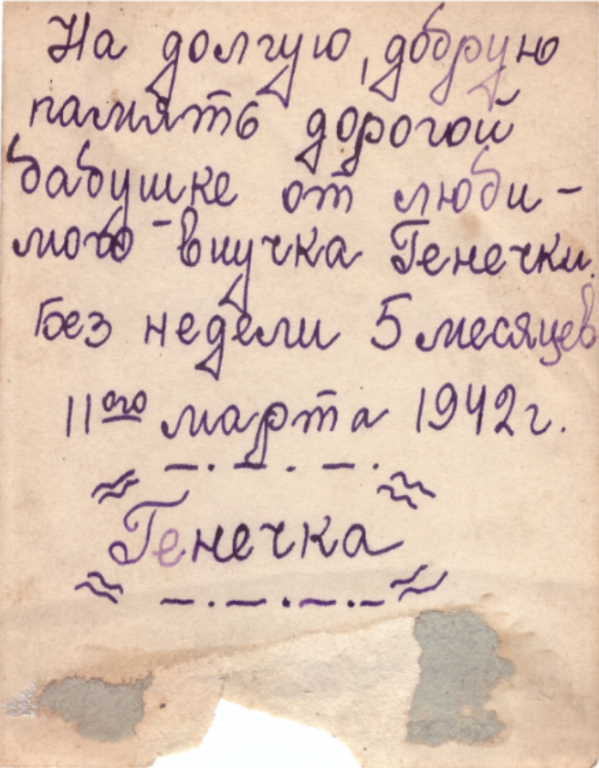 На долгую, добрую
память дорогой
бабушке от люби-
мого внучка Генечки.
Без недели 5 месяцев
11ого марта 1942г.
Генечка